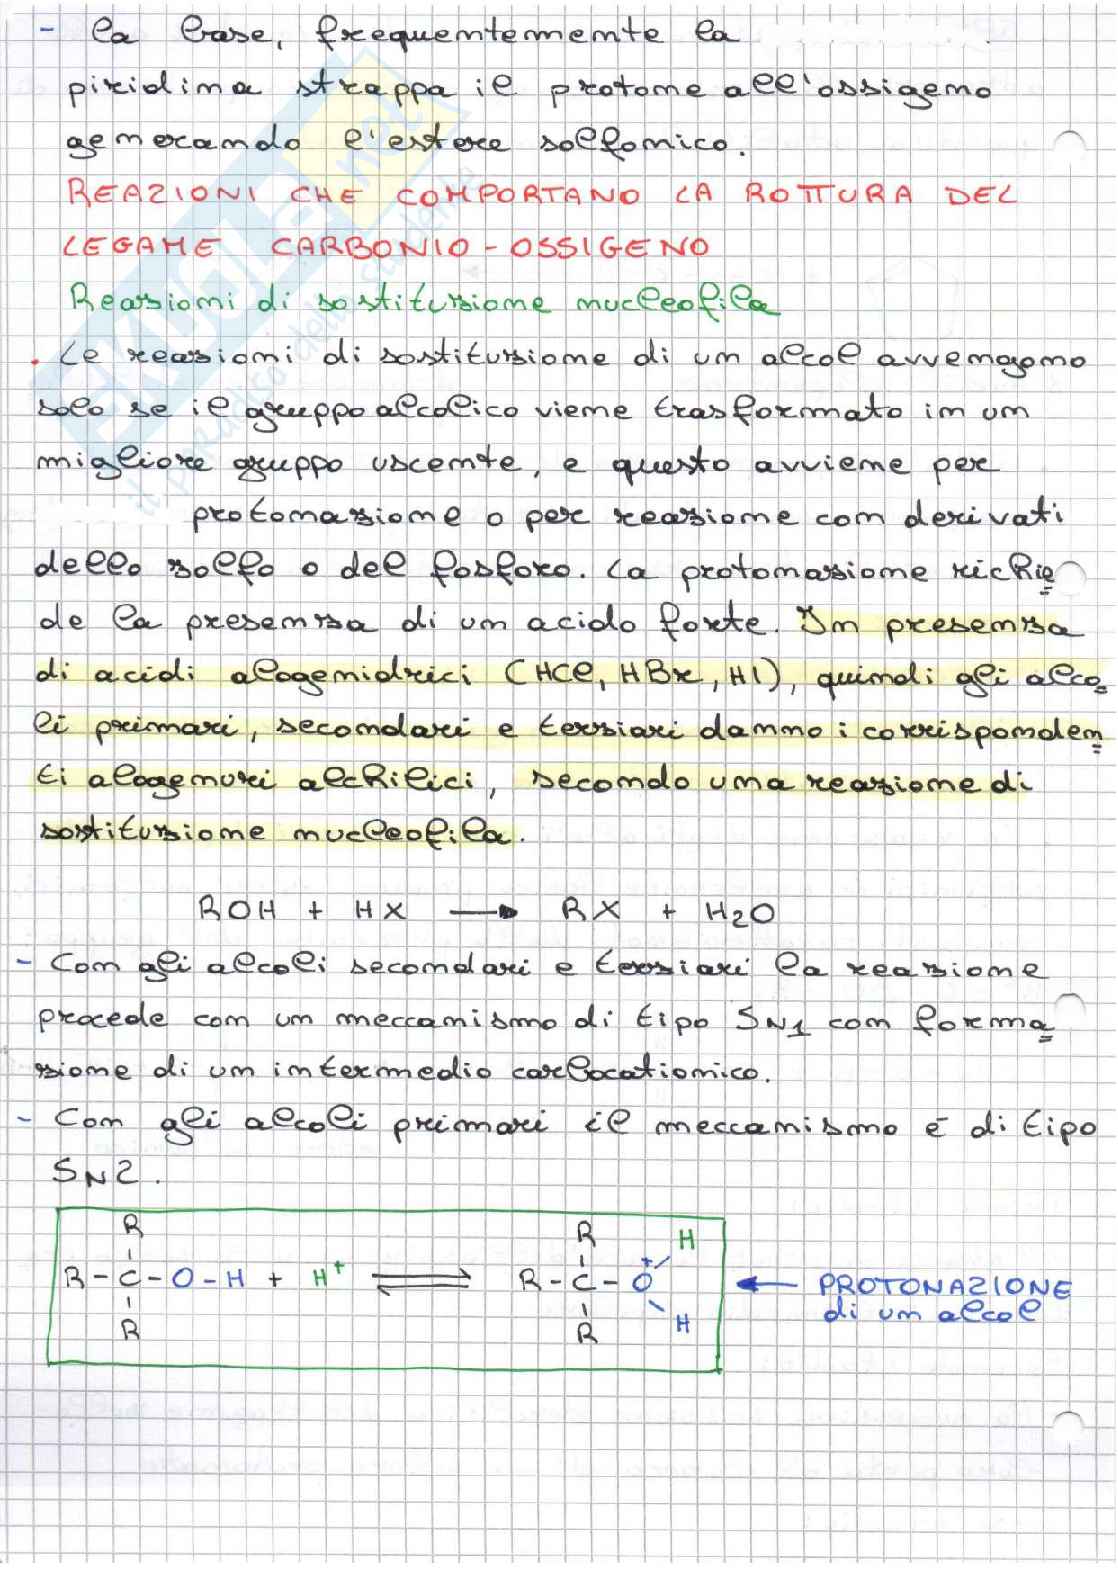 - la base, frequentemente la
piridina strappa il protone all'ossigeno
generando l'estere solfonico.
REAZIONI CHE COMPORTANO LA ROTTURA DEL
LEGAME CARBONIO-OSSIGENO
Reazioni di sostituzione nucleofila
. Le reazioni di sostituzione di un alcol avvengono
solo se il gruppo alcolico viene trasformato in un
migliore gruppo uscente, e questo avviene per
protonazione o per reazione con derivati
dello zolfo o del fosforo. La protonazione richie
de la presenza di un acido forte. In presenza
di acidi alogenidrici (HCl, HBr, HI), quindi gli alco
li primari, secondari e terziari danno i corrisponden
ti alogenuri alchilici, secondo una reazione di
sostituzione nucleofila.
ROH + HX → RX + H2O
- Con gli alcoli secondari e terziari la reazione
procede con un meccanismo di tipo SN1 con forma
zione di un intermedio carbocationico.
- Con gli alcoli primari il meccanismo è di tipo
SN2.
R R H
R-C-O-H + H+ ⇌ R-C-O+ ← PROTONAZIONE
di un alcol
R R H